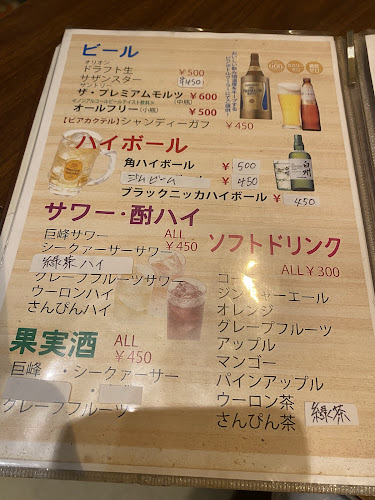 ビール
オリオン
ドラフト生 ￥500
サザンスター ￥450
サントリー
ザ・プレミアムモルツ ￥600
(中瓶)
《ノンアルコールビールテイスト飲料》
オールフリー(小瓶) ￥500
【ビアカクテル】シャンディーガフ ￥450
ハイボール
角ハイボール ￥500
ジムビーム ￥450
ブラックニッカハイボール ￥450
サワー・酎ハイ
ALL
￥450
巨峰サワー
シークァーサーサワー
緑茶ハイ
グレープフルーツサワー
ウーロンハイ
さんぴんハイ
果実酒
ALL
￥450
巨峰・シークァーサー
グレープフルーツ
ソフトドリンク
ALL￥300
コー
ジンジャーエール
オレンジ
グレープフルーツ
アップル
マンゴー
パインアップル
ウーロン茶
さんぴん茶 緑茶